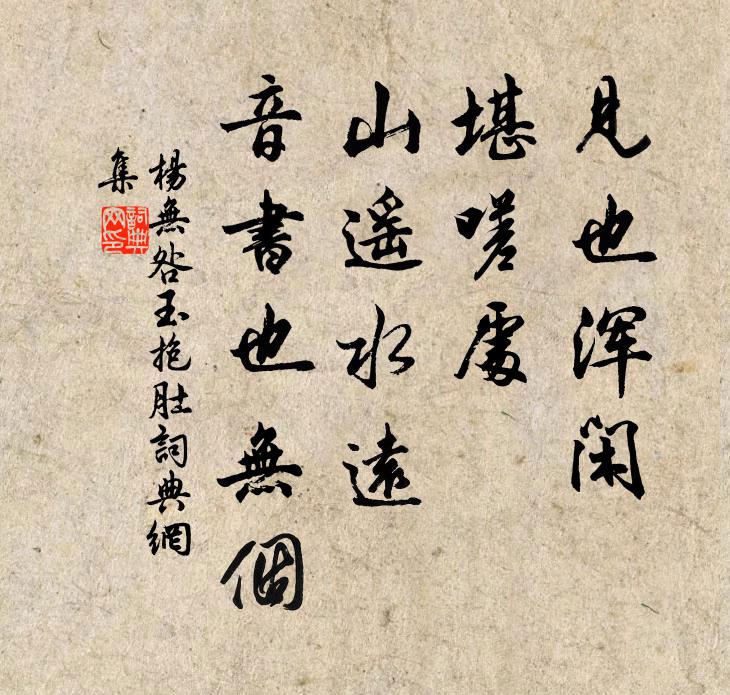 見也浑閑
堪嗟處
山遥水遠
音書也無個
楊無咎玉抱肚詞典網
集
詞典
网印